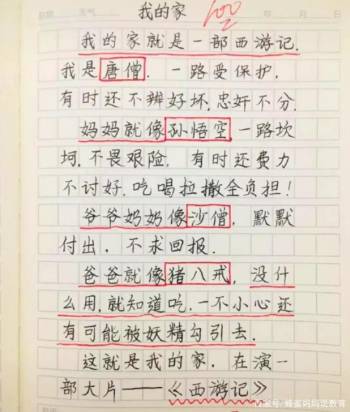 我的家
100
我的家就是一部西游记.
我是唐僧. 一路受保护,
有时还不辨好坏,忠奸不分.
妈妈就像孙悟空一路坎
坷,不畏艰险, 有时还费力
不讨好,吃喝拉撒全负担!
爷爷奶奶像沙僧. 默默
付出, 不求回报.
爸爸就像猪八戒, 没什
么用,就知道吃,一不小心还
有可能被妖精勾引去.
这就是我的家, 在演一
部大片——《西游记》